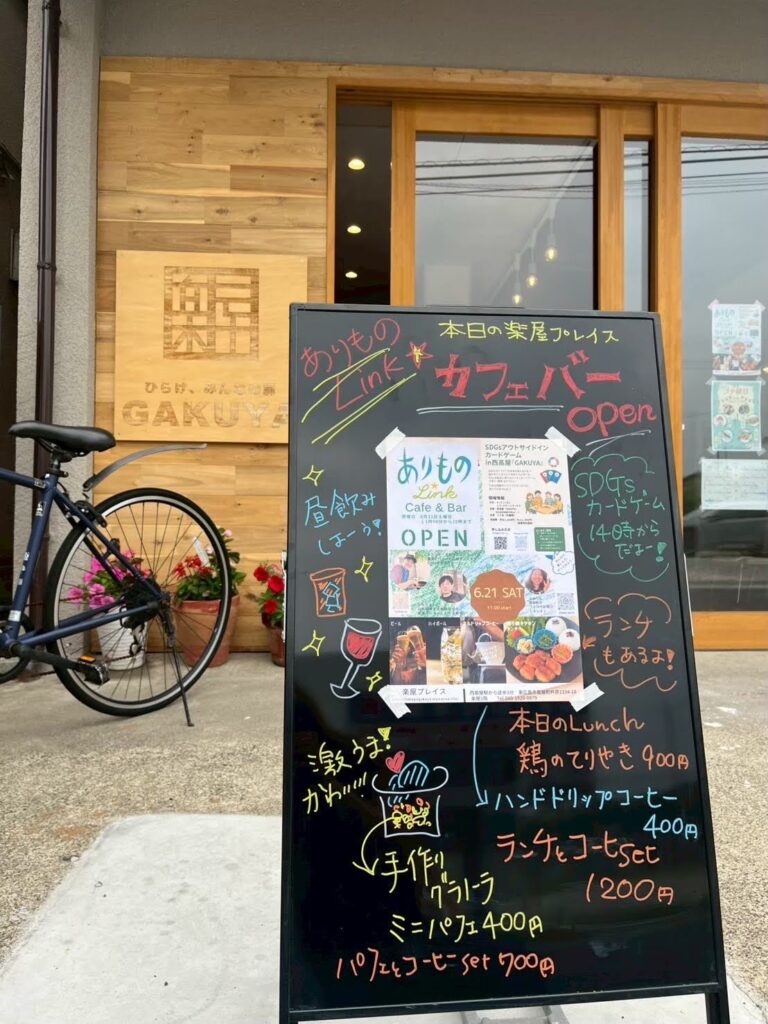 ひらけ、みんなの扉
GAKUYA
本日の楽屋プレイス
ありもの
Link
カフェバー
open
昼飲み
しよーう!
SDGs
カードゲーム
14時から
だよー!
ランチ
もあるよ!
ありもの
Link
Cafe & Bar
OPEN
SDGsアウトサイドイン
カードゲーム
in西高屋「GAKUYA」
6.21 SAT
11:00 start
ビール
ハイボール
楽屋プレイス
激うま!
かわいい!!
手作り
グラノーラ
ミニパフェ400円
パフェとコーヒーset 700円
本日のLunch
鶏のてりやき 900円
ハンドドリップコーヒー
400円
ランチとコーヒset
1200円